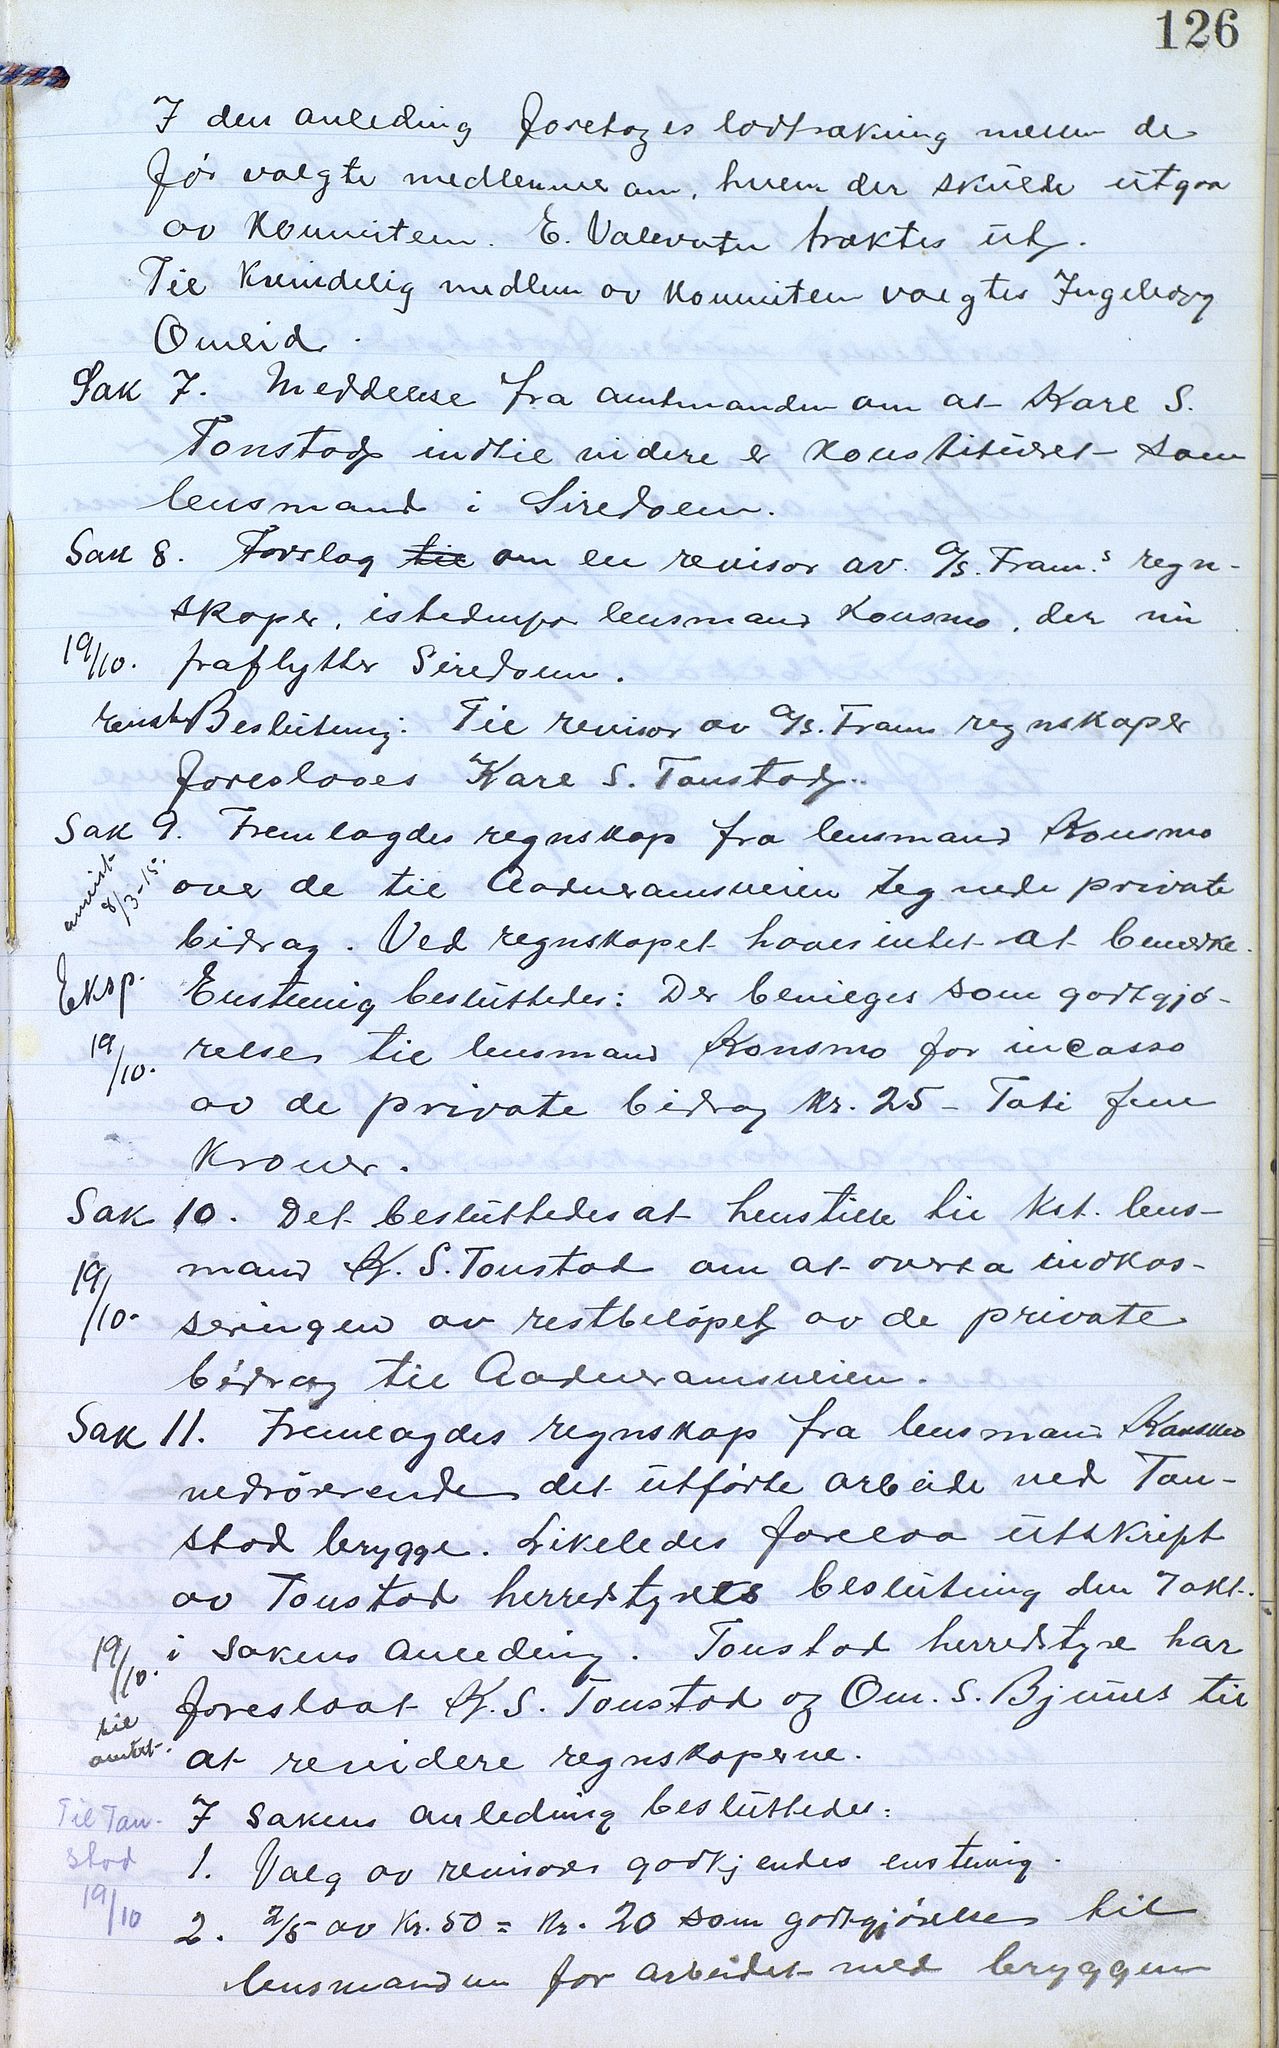 126
I den anleding foretoges lodtrækning mellem de
før valgte medlemmer om, hvem der skulde utgaa
av komiteen. E. Valevatn traktes ut.
Til kvindelig medlem av komiteen valgtes Ingeborg
Omlid.
Sak 7. Meddelelse fra amtmanden om at Kare S.
Tonstad indtil videre er konstitueret som
lensmand i Siredalen.
Sak 8. Forslag til om en revisor av A/S. Fram.s regn-
skaper, istedenfor lensmand Konsmo, der nu
19/10. fraflytter Siredalen.
Enst. Beslutning: Til revisor av A/S. Frams regnskaper
foreslaaes Kare S. Tonstad.
Sak 9. Fremlagdes regnskap fra lensmand Konsmo
8/3-15.
over de til Aadneramsveien tegnede private
bidrag. Ved regnskapet haves intet at bemerke.
Eksp. Enstemig besluttedes: Der bevilges som godtgjø-
19/10. relse til lensmand Konsmo for incasso
av de private bidrag kr. 25 - Toti fem
kroner.
Sak 10. Det besluttedes at henstille til kst. lens-
19/10. mand K. S. Tonstad om at overta indkas-
seringen av restbeløpet av de private
bidrag til Aadneramsveien.
Sak 11. Fremlagdes regnskap fra lensmand Konsmo
vedrørende det utførte arbeide ved Ton-
stad brygge. Likeledes forelaa utskript
av Tonstad herredstyres beslutning den 7 okt.
19/10. i sakens anleding. Tonstad herredstyre har
til foreslaat K. S. Tonstad og Om. S. Bjunes til
amtet. at revidere regnskaperne.
Til Ton- I sakens anledning besluttedes:
stad 1. Valg av revisorer godkjendes enstemig.
19/10 2. 2/5 av kr. 50 = kr. 20 som godtgjørelse til
lensmanden for arbeidet med bryggen